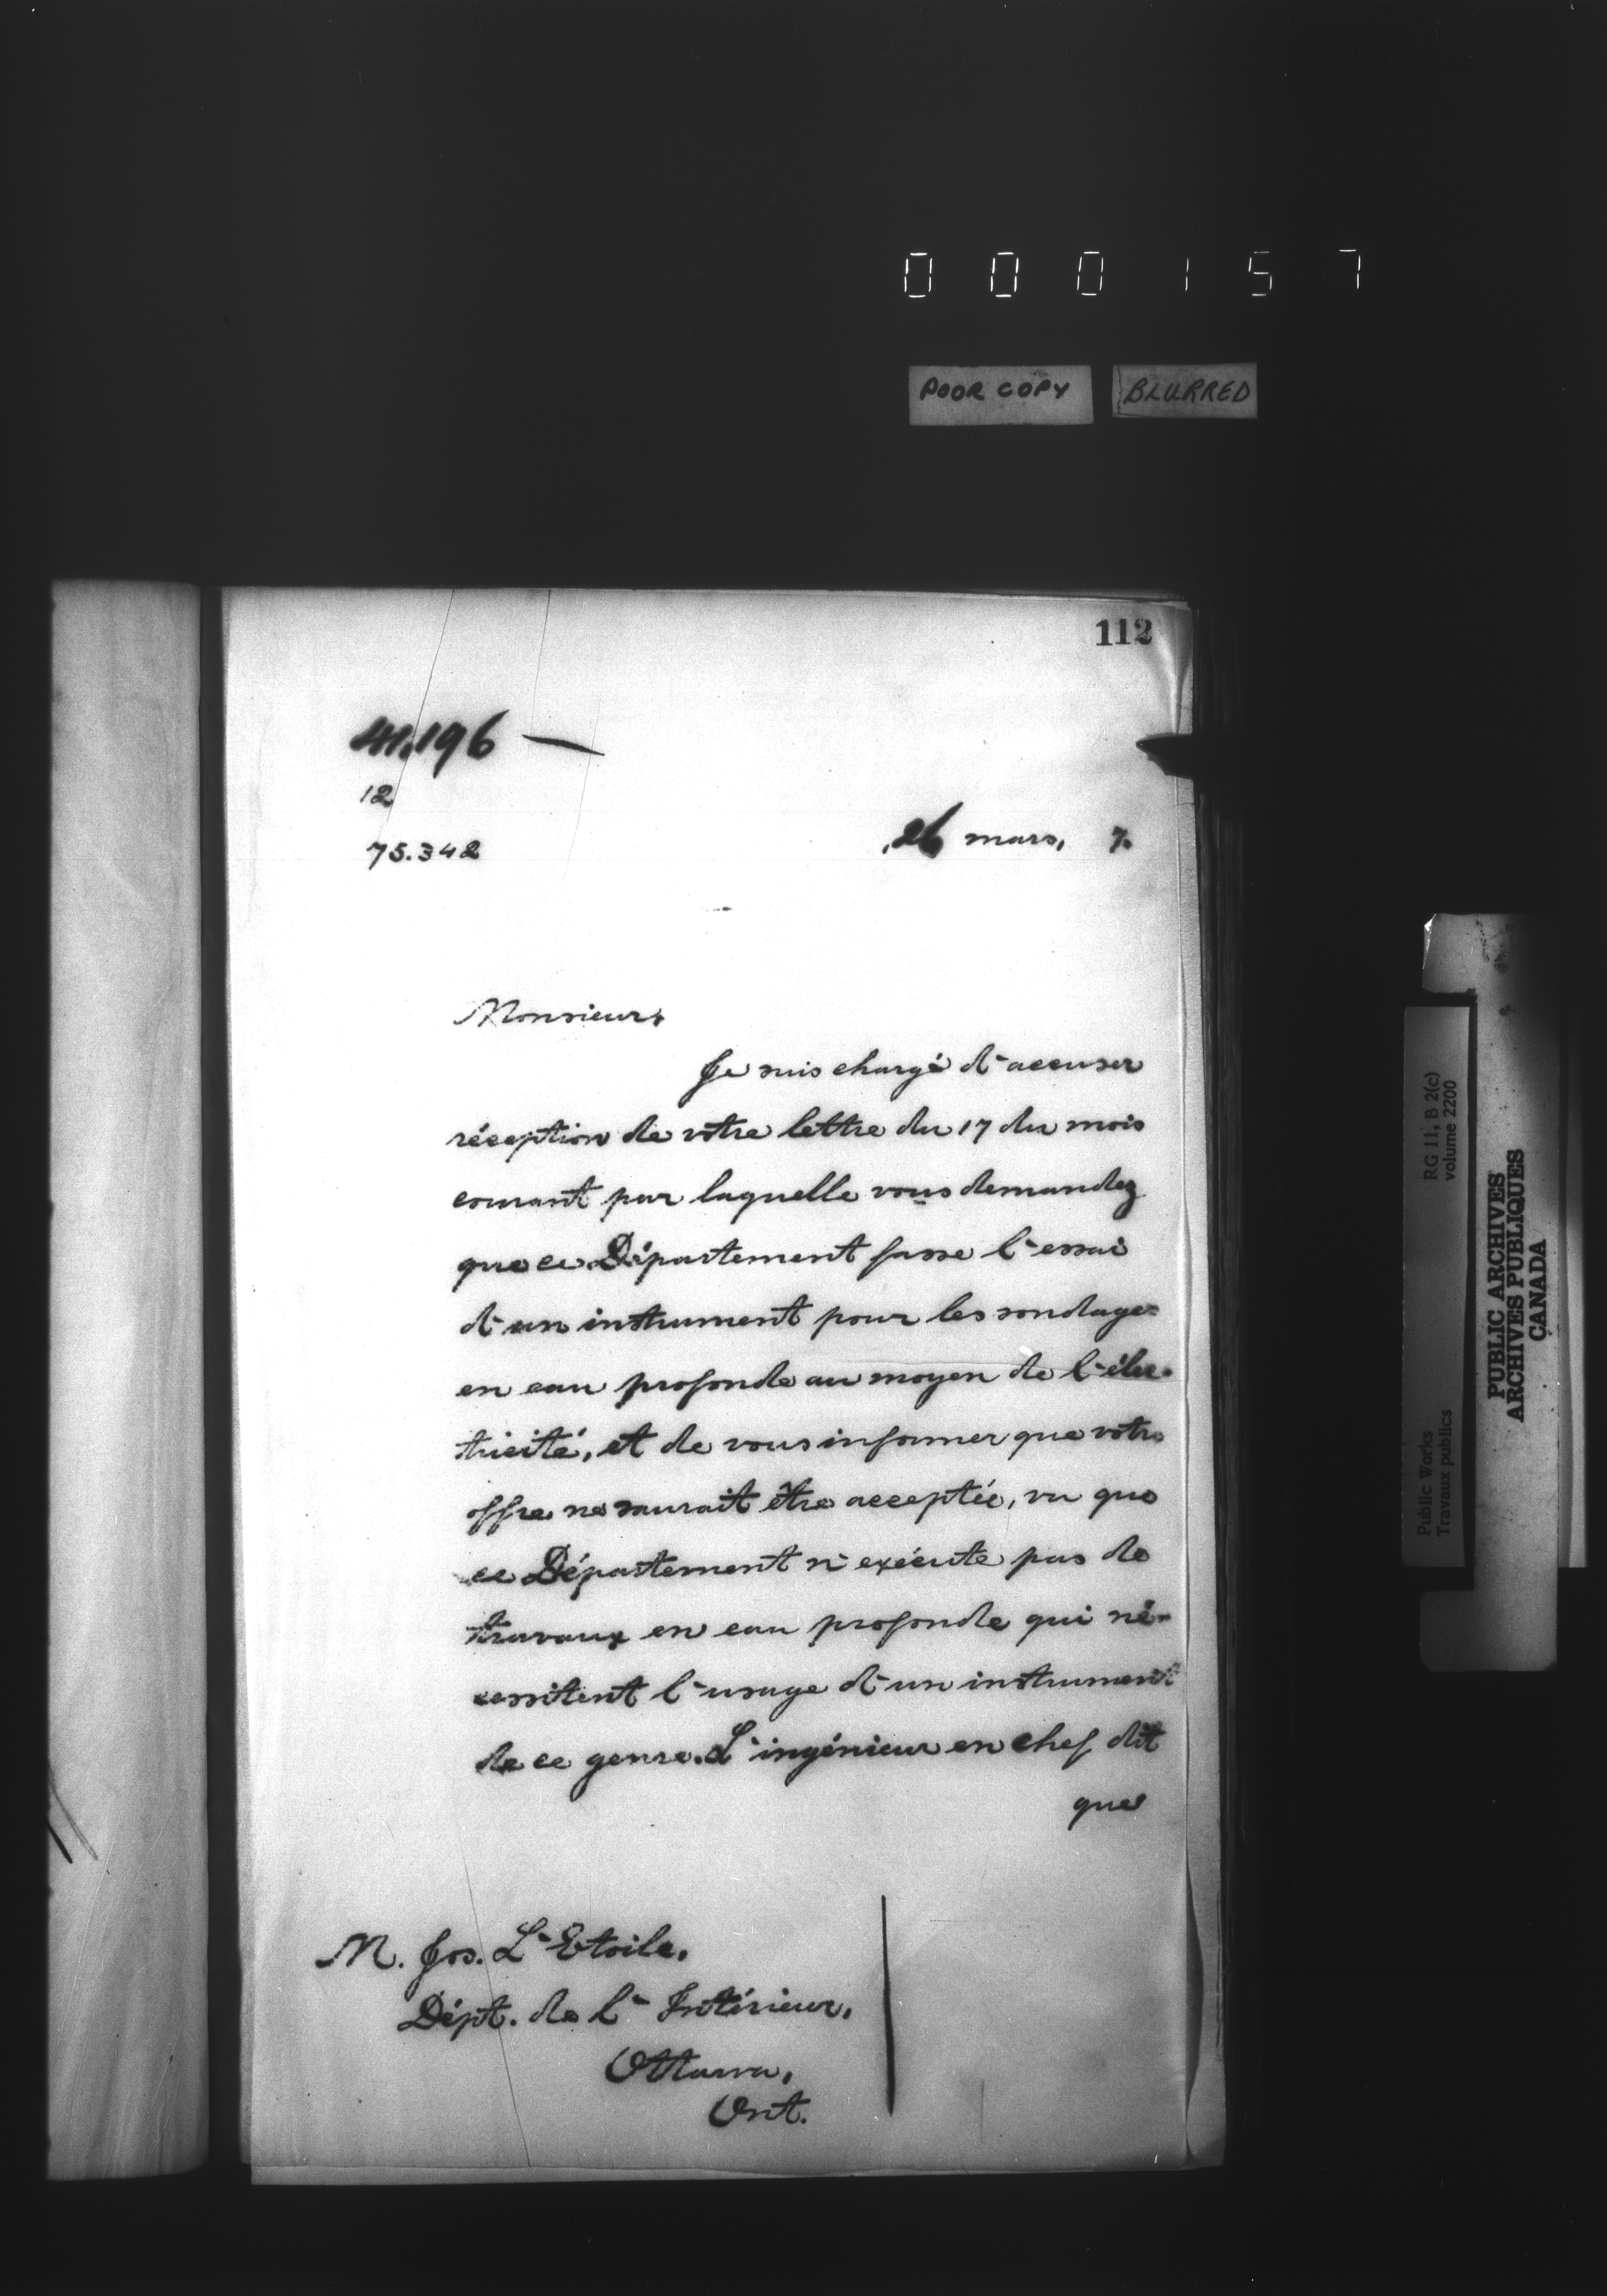 000157
POOR COPY BLURRED
112
41.196 —
12
75.342
26 mars, 7.
Monsieur,
Je suis chargé d'accuser
réception de votre lettre du 17 du mois
courant par laquelle vous demandez
que ce Département fasse l'essai
d'un instrument pour les sondages
en eau profonde au moyen de l'élec-
tricité, et de vous informer que votre
offre ne saurait être acceptée, vu que
ce Département n'exécute pas de
travaux en eau profonde qui né-
cessitent l'usage d'un instrument
de ce genre. L'ingénieur en chef dit
que
M. Jos. L'Etoile,
Dépt. de l'Intérieur,
Ottawa,
Ont.
RG 11, B 2(c)
volume 2200
Public Works
Travaux publics
PUBLIC ARCHIVES
ARCHIVES PUBLIQUES
CANADA